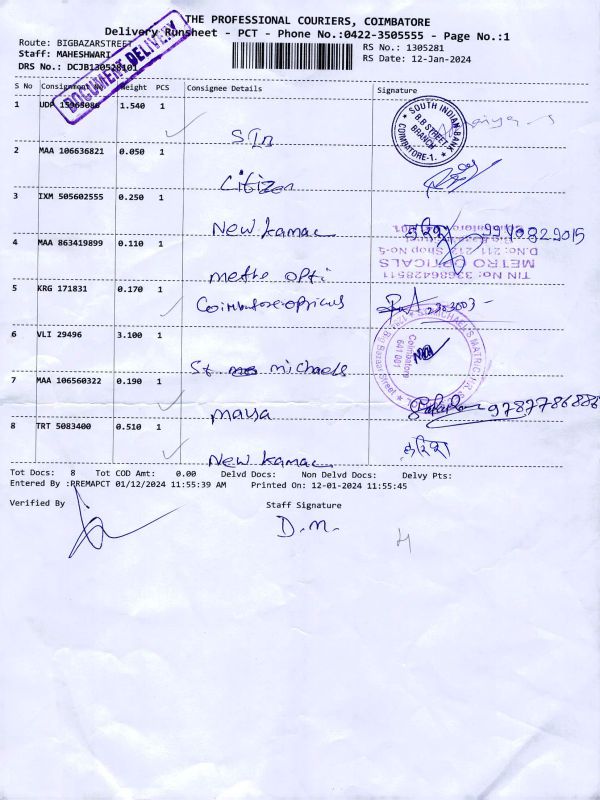 THE PROFESSIONAL COURIERS, COIMBATORE
Delivery Runsheet - PCT - Phone No.:0422-3505555 - Page No.:1
Route: BIGBAZARSTREET
RS No.: 1305281
Staff: MAHESHWARI
RS Date: 12-Jan-2024
DRS No.: DCJB130528101
DOCUMENT DELIVERY
S No Consignment No Weight PCS Consignee Details Signature
1 UDP 15968086 1.540 1
SIn
SOUTH INDIAN BANK
B.B STREET
BRANCH
COIMBATORE-1.
2 MAA 106636821 0.050 1
Citizen
3 IXM 505602555 0.250 1
New kamac
9940829015
4 MAA 863419899 0.110 1
metho opti
TIN No: 33686428511
METRO OPTICALS
D.No: 211-213, Shop No-5
5 KRG 171831 0.170 1
Coimbatore opticus
2383003 -
6 VLI 29496 3.100 1
St. michaels
ST. MICHAEL'S MATRIC
Big Bazaar Street
Coimbatore
641 001
7 MAA 106560322 0.190 1
maya
9787786886
8 TRT 5083400 0.510 1
New kamac
Tot Docs: 8 Tot COD Amt: 0.00 Delvd Docs: Non Delvd Docs: Delvy Pts:
Entered By :PREMAPCT 01/12/2024 11:55:39 AM Printed On: 12-01-2024 11:55:45
Verified By
Staff Signature
D.M.